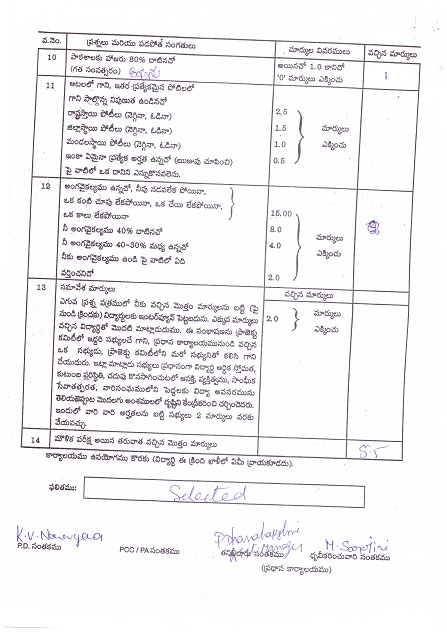 వ.నెం. ప్రశ్నలు మరియు పడపోత సంగతులు మార్కుల వివరములు వచ్చిన మార్కులు
10 పాఠశాలకు హాజరు 80% దాటినచో అయినచో 1.0 కానిచో
(గత సంవత్సరం) '0' మార్కులు ఎక్కించు 1
11 ఆటలలో గాని, ఇతర ప్రత్యేకమైన పోటిలలో
గాని పాల్గొన్న నిపుణుత ఉండినచో
రాష్ట్రస్థాయి పోటీలు (నెగ్గినా, ఓడినా) 2.5
జిల్లాస్థాయి పోటీలు (నెగ్గినా, ఓడినా) 1.5 మార్కులు
మండలస్థాయి పోటీలు (నెగ్గినా, ఓడినా) 1.0 ఎక్కించు
ఇంకా ఏమైనా ప్రత్యేక అర్హత ఉన్నచో (ఋజువు చూపించి) 0.5
పై వాటిలో ఒక దానిని ఎన్నుకొనవలెను.
12 అంగవైకల్యము ఉన్నచో, నీవు నడవలేక పోయినా,
ఒక కంటి చూపు లేకపోయినా, ఒక చేయి లేకపోయినా,
ఒక కాలు లేకపోయినా 15.00
నీ అంగవైకల్యము 40% దాటినచో 8.0 మార్కులు
నీ అంగవైకల్యము 40-30% మధ్య ఉన్నచో 4.0 ఎక్కించు
నీకు అంగవైకల్యము ఉండి పై వాటిలో ఏది
వర్తించనిచో 2.0
13 సమావేశ మార్కులు వచ్చిన మార్కులు
ఎగువ ప్రశ్న పత్రములో నీకు వచ్చిన మొత్తం మార్కులను బట్టి (పై
నుండి క్రిందకు) విద్యార్థులకు ఇంటర్వ్యూవ్ పెట్టబడును. ఎక్కువ మార్కులు 2.0 మార్కులు
వచ్చిన విద్యార్థితో మొదటి మాట్లాడుదుము. ఈ సంభాషణను ప్రాజెక్టు ఎక్కించు
కమిటీలో ఇద్దరి సభ్యులచే గాని, ప్రధాన కార్యాలయమునుండి వచ్చిన
ఒక సభ్యుడు, ప్రాజెక్టు కమిటీలోని మరో సభ్యునితో కలిసి గాని
చేయుదురు. ఇట్లా మాట్లాడు సభ్యులు ప్రధానంగా విద్యార్థి ఆర్థిక స్తోమత,
కుటుంబ పరిస్థితి, చదువు కొనసాగించుటలో ఆసక్తి, వ్యక్తిత్వము, సాంఘిక
సేవాతత్పరత, వారిసంఘములోని పెద్దలకు విద్యా అవసరమును
తెలియజెప్పుట మొదలగు అంశములలో దృష్టిని కేంద్రీకరించి చర్చించెదరు.
ఇందులో వారి వారి అర్హతలను బట్టి సభ్యులు 2 మార్కులు వరకు
వేయవచ్చు.
14 మౌళిక పరీక్ష అయిన తరువాత వచ్చిన మొత్తం మార్కులు 8.5
కార్యాలయము ఉపయోగము కొరకు (విద్యార్థి ఈ క్రింది ఖాళీలో ఏమీ వ్రాయకూడదు).
ఫలితము: Selected
P.D. సంతకము PCC / PA సంతకము సంతకము ధృవీకరించువారి సంతకము
(ప్రధాన కార్యాలయము)